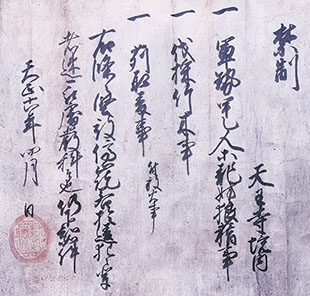 禁制
天王寺境内
一 軍勢甲乙人等乱妨狼藉事
一 伐採竹木事
一 苅取麦事
右條堅被停止訖若於違犯之輩
者速可被處厳科者也仍下知如件
天正十八年四月 日